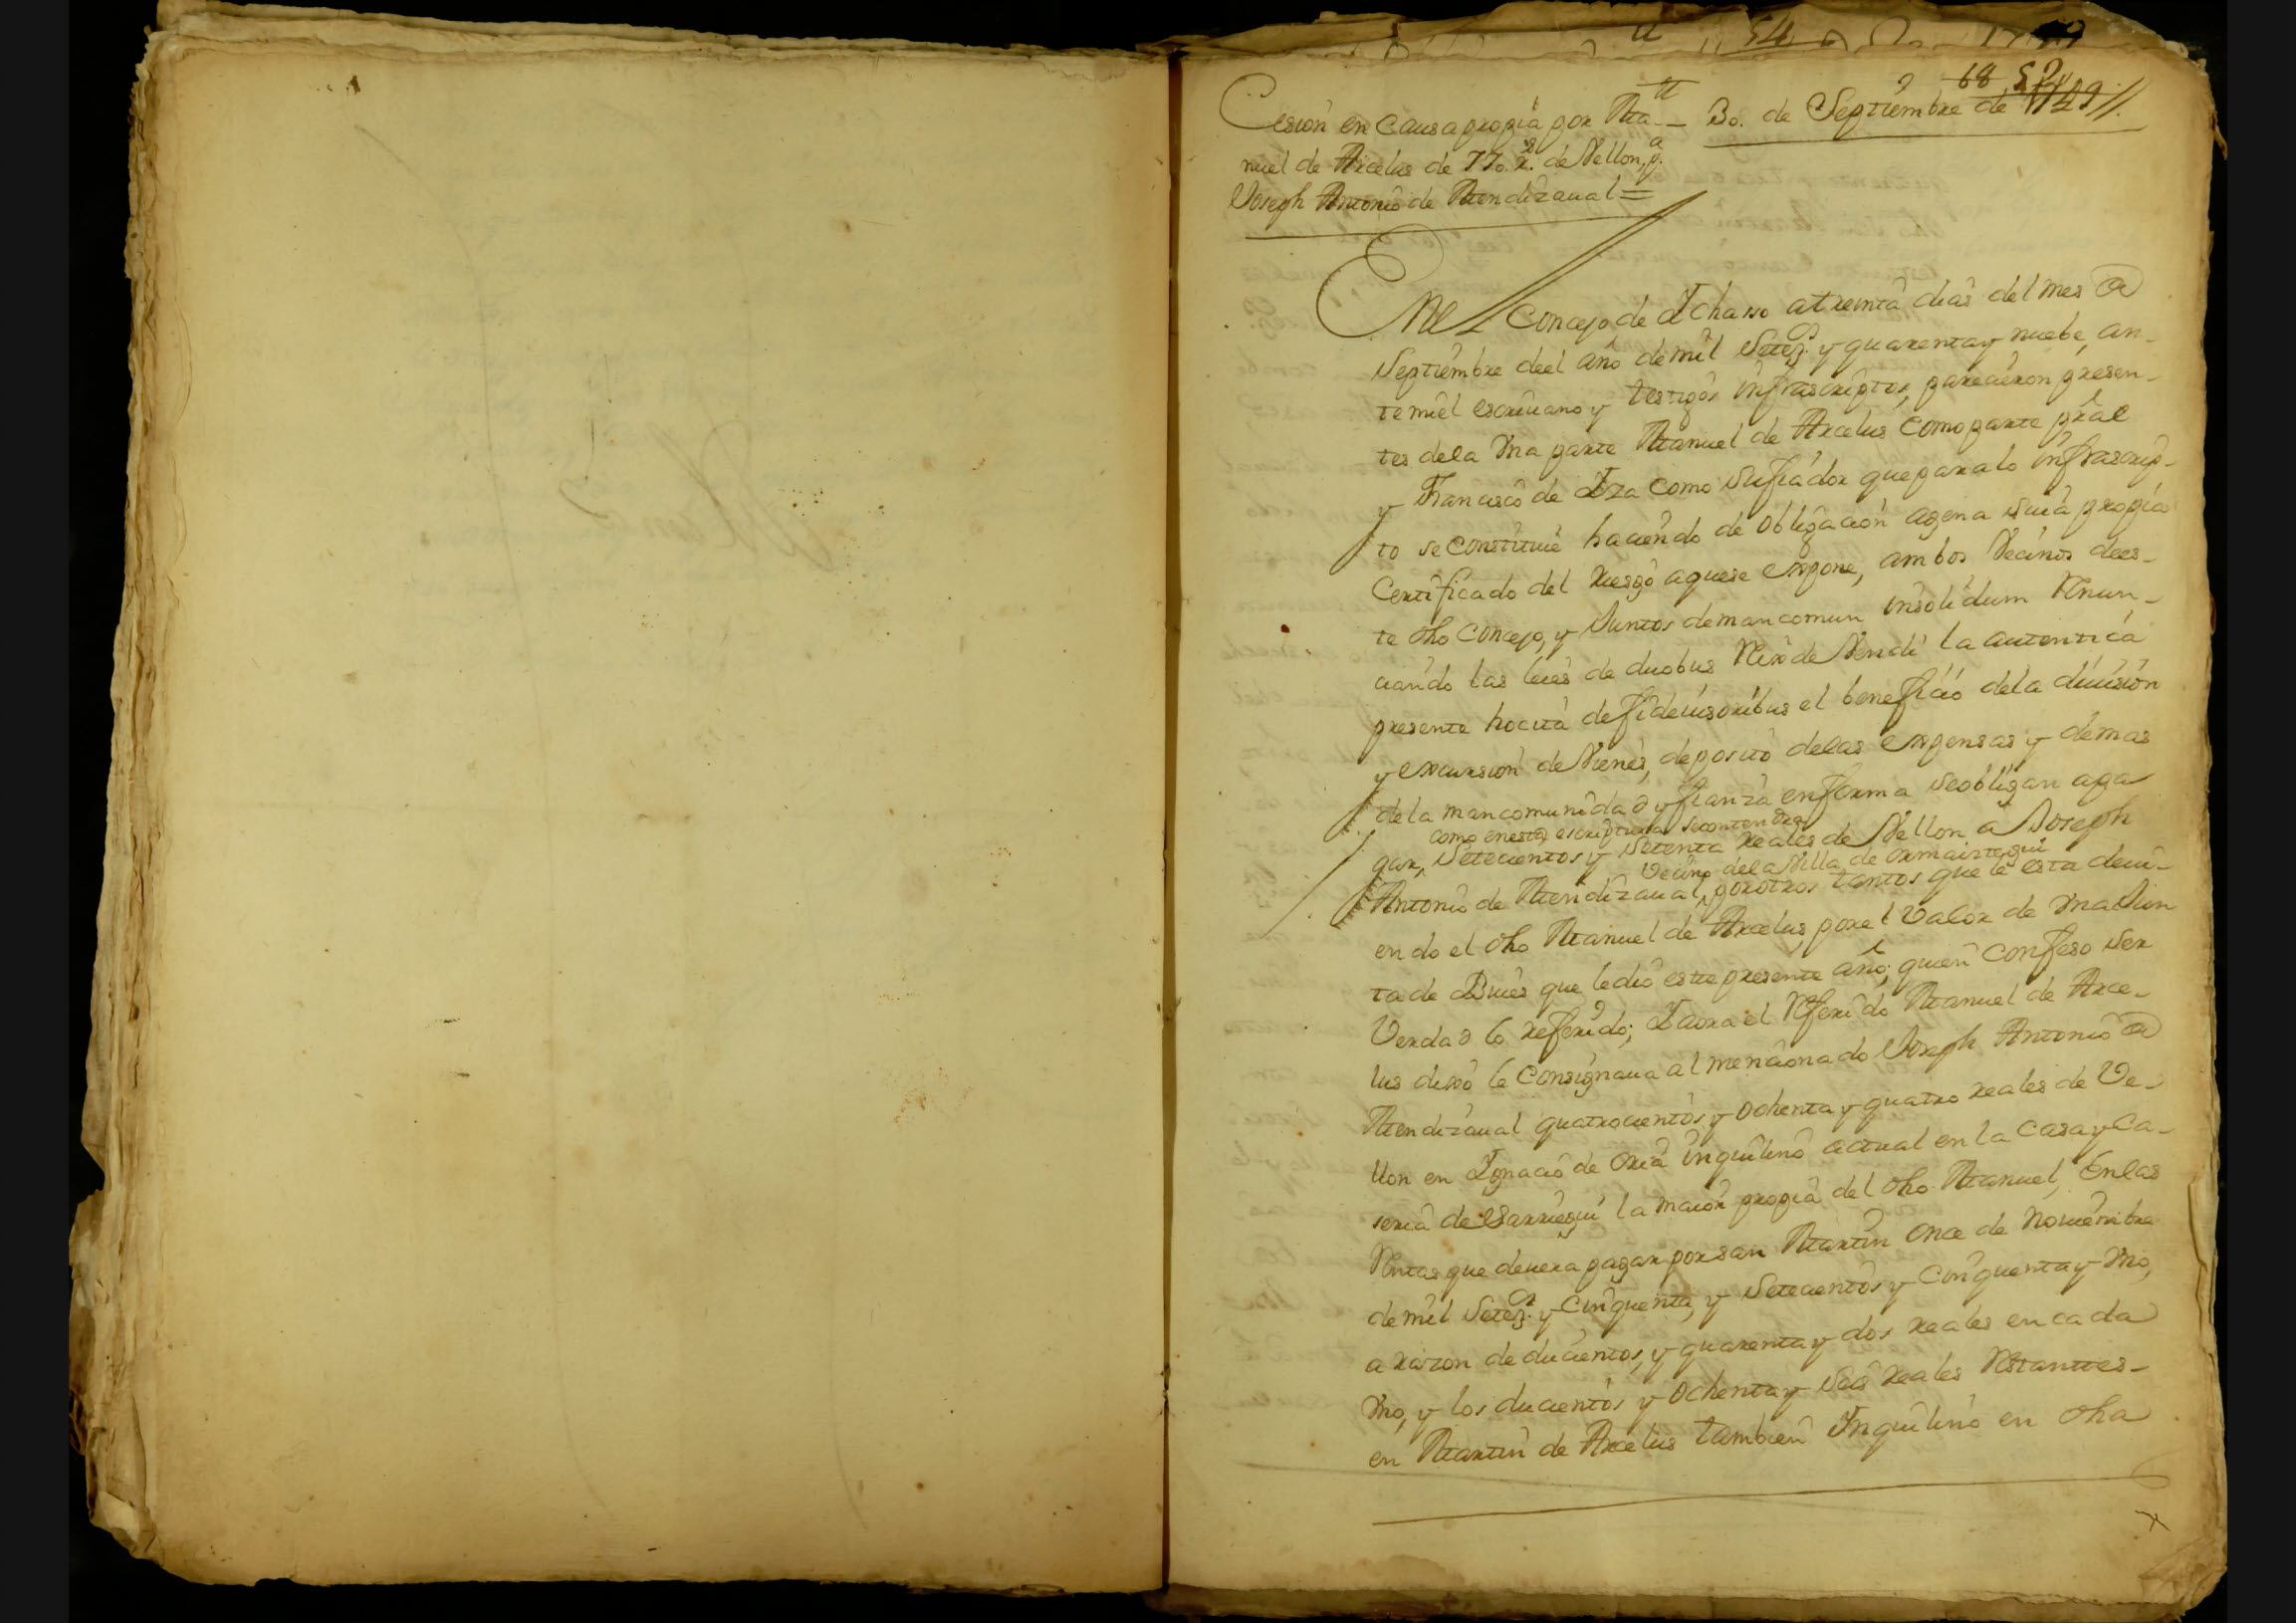 54
68 52
Cesion en Causa propia por Ma-
nuel de Arcelus de 770. Rs. de Vellon, pa.
Joseph Antonio de Mendizaual =
30. de Septiembre de 1749 //.
En el Concejo de Ichasso a treinta dias del mes de
Septiembre deel año de mil Setezs. y quarenta y nuebe, an-
te mi el escriuano y testigos infrascriptos, parecieron presen-
tes dela Vna parte Manuel de Arcelus Como parte pral
y Francisco de Iza Como su fiador que para lo infrascrip-
to se Constituie haciendo de Obligacion agena suia propia
Certificado del Riesgo aquese expone, ambos Vecinos dees-
te dho Concejo, y Juntos demancomun insolidum Renun-
ciando las leies de duobus Rex de Vendi la autentica
presente hocita defideiusoribus el beneficio dela diuision
y excursion de Vienes, deposito delas expensas y demas
dela mancomunidad y fianza en forma se obligan apa
como enesta escriptura se contendra
gar, Setecientos y Setenta Reales de Vellon a Joseph
Vecino dela Villa de Ormaiztegui
Antonio de Mendizaual, por otros tantos que le esta deui-
endo el dho Manuel de Arcelus, por el Valor de Vna Jun
ta de Bueis que le dio este presente año; quien Confeso ser
Verdad lo referido; I aora el Referido Manuel de Arce-
lus dixo le Consignaua al mencionado Joseph Antonio de
Mendizaual quatrocientos y Ochenta y quatro Reales de Ve-
llon en Ignacio de Oria inquilino actual en la Casa y Ca-
seria de Barriegui la maior propia del dho Manuel, En las
Rentas que deuera pagar por san Martin Once de Nouiembre
de mil Setezs. y Cinquenta, y Setecientos y Cinquenta y Vno,
a razon de ducientos, y quarenta y dos Reales en cada
Vno, y los ducientos y Ochenta y Seis Reales Restantes-
en Martin de Arcelus tambien Inquilino en dha